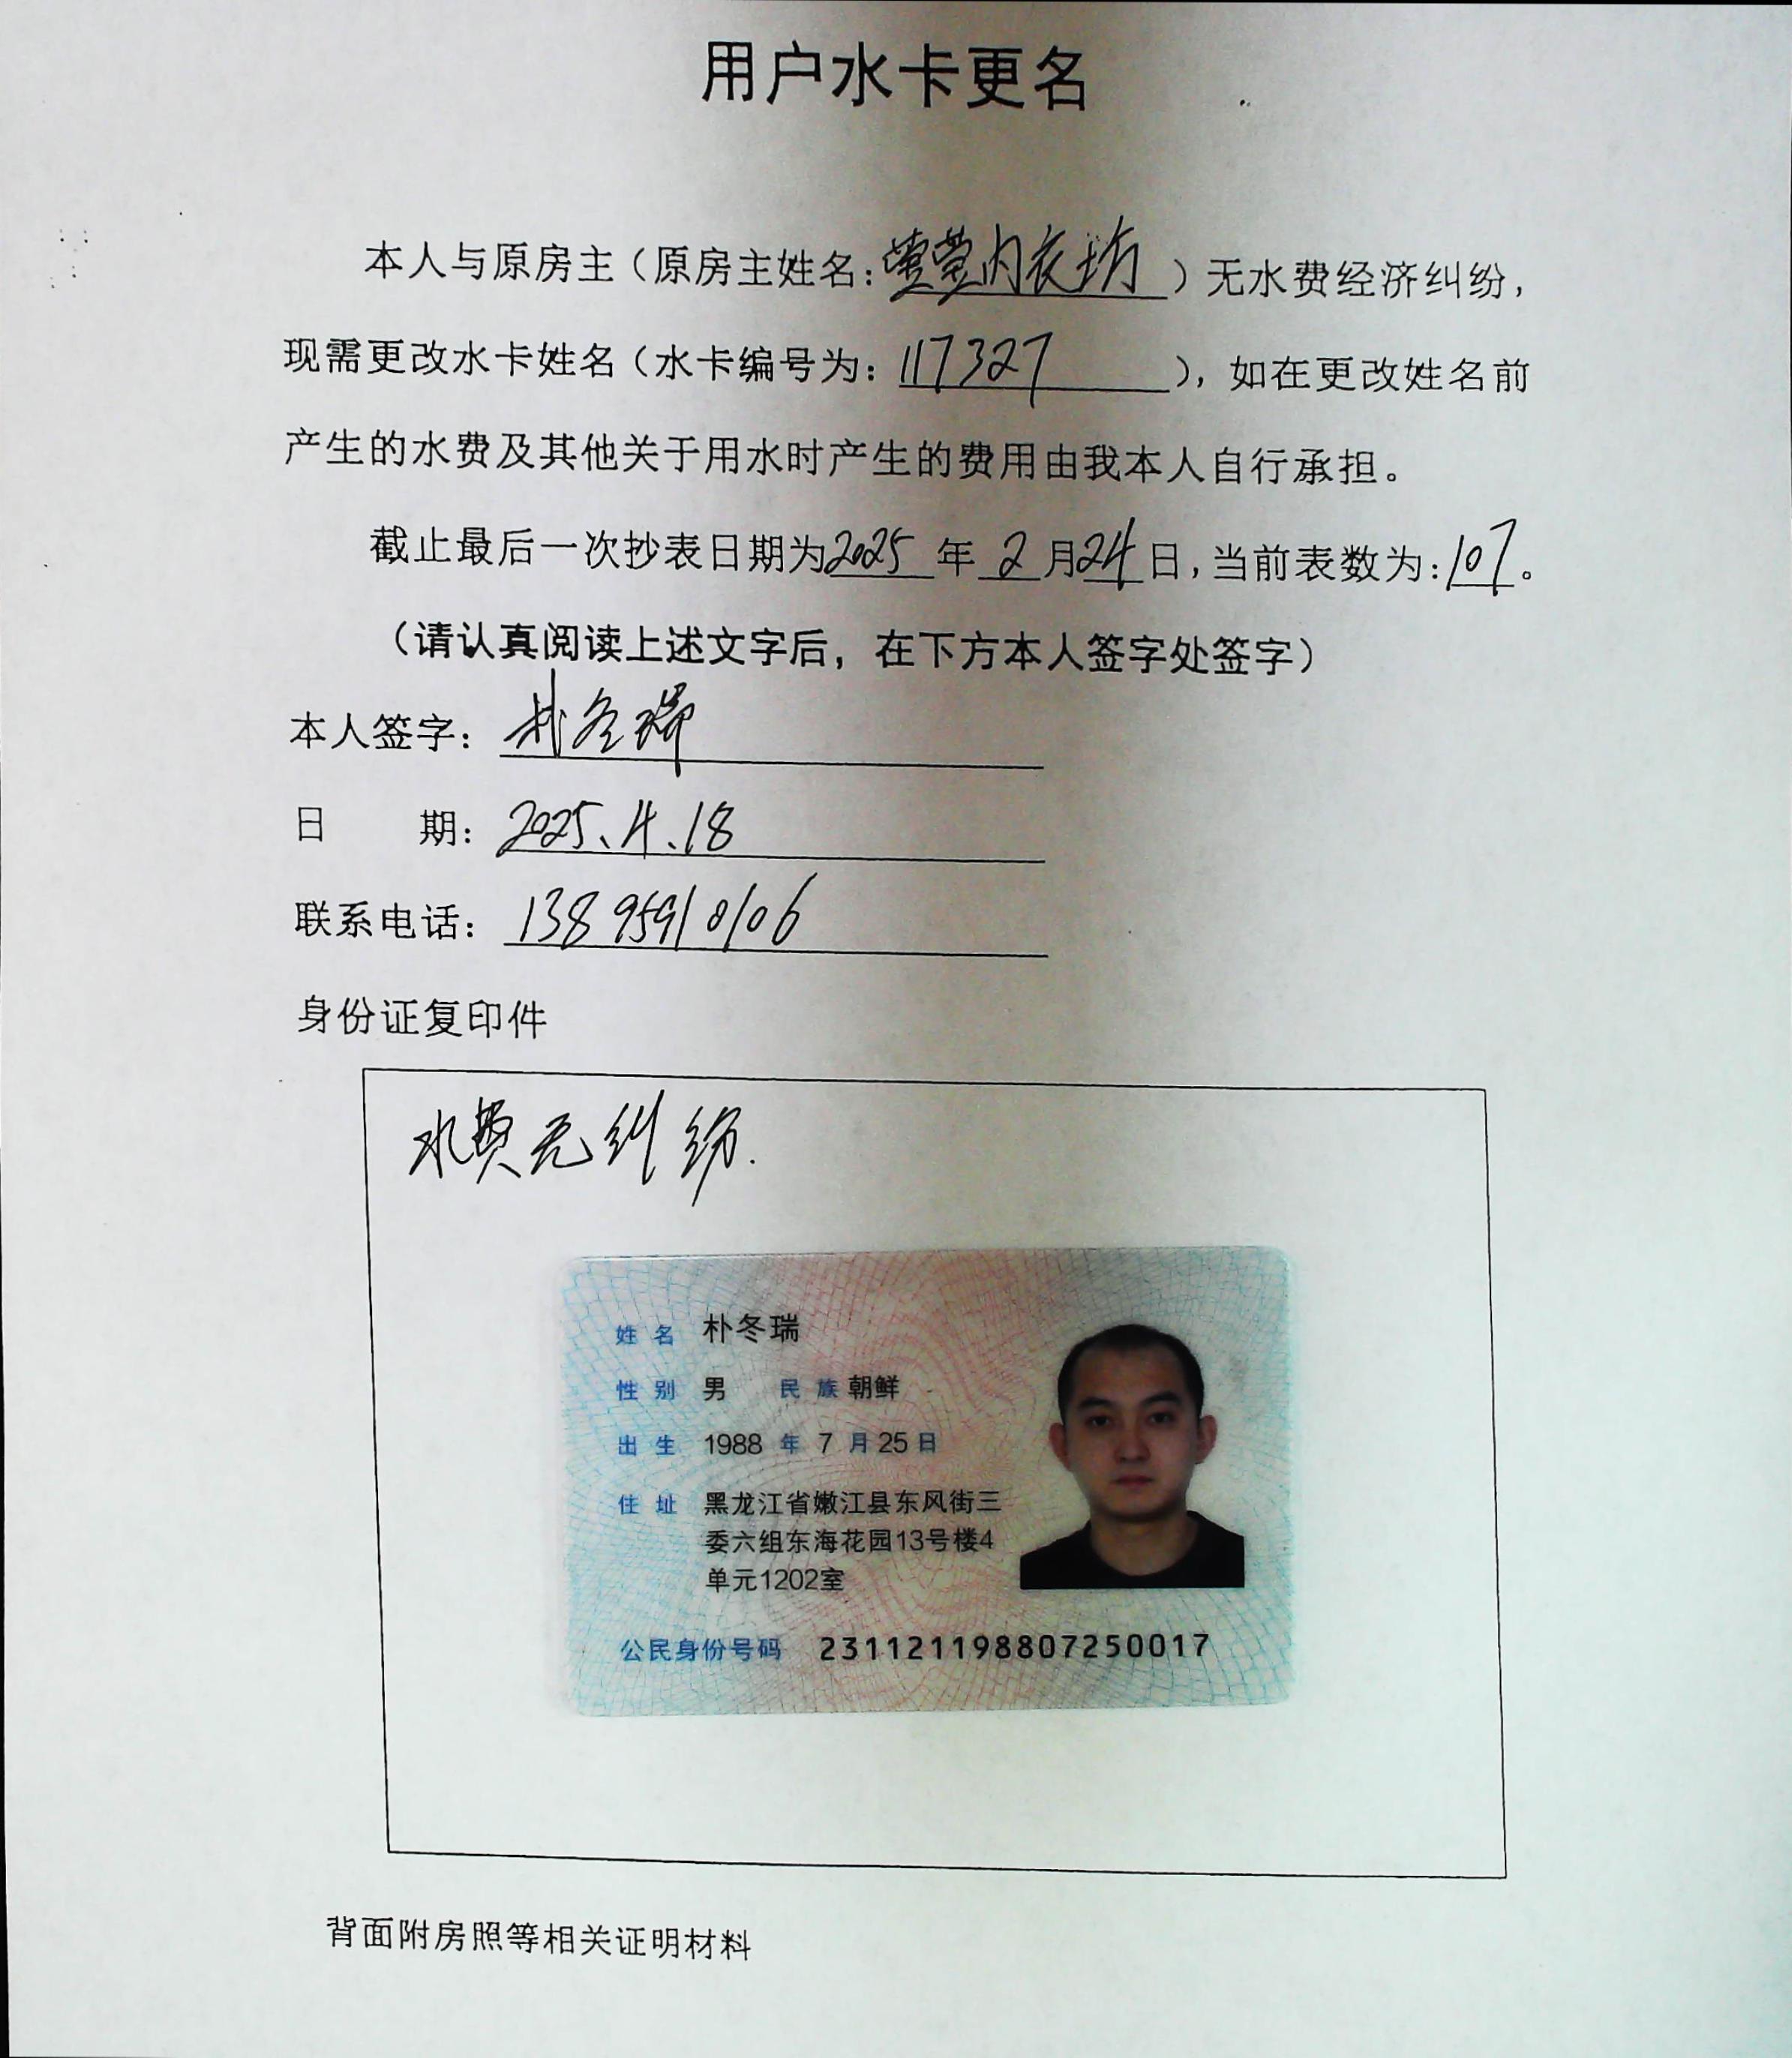 用户水卡更名
本人与原房主（原房主姓名：莹莹内衣坊）无水费经济纠纷，
现需更改水卡姓名（水卡编号为：117327），如在更改姓名前
产生的水费及其他关于用水时产生的费用由我本人自行承担。
截止最后一次抄表日期为2025年2月24日，当前表数为：107。
（请认真阅读上述文字后，在下方本人签字处签字）
本人签字：朴冬瑞
日 期：2025.4.18
联系电话：13895910106
身份证复印件
水费无纠纷.
姓名 朴冬瑞
性别 男 民族 朝鲜
出生 1988年7月25日
住址 黑龙江省嫩江县东风街三
委六组东海花园13号楼4
单元1202室
公民身份号码 231121198807250017
背面附房照等相关证明材料